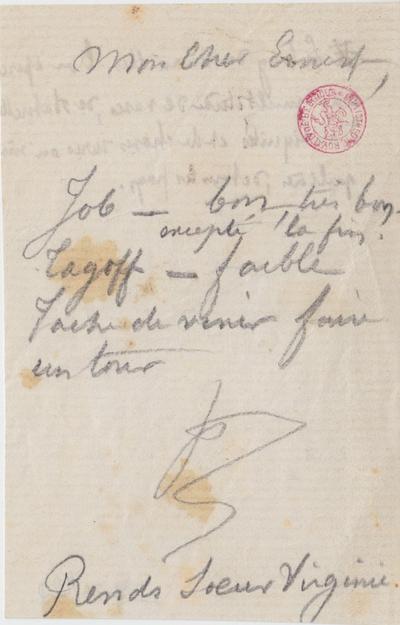 Mon Cher Ernest,
Job — bon, très bon.
excepté la fin.
Zagoff — faible
Tache de venir faire
un tour
Rends Soeur Virginie.